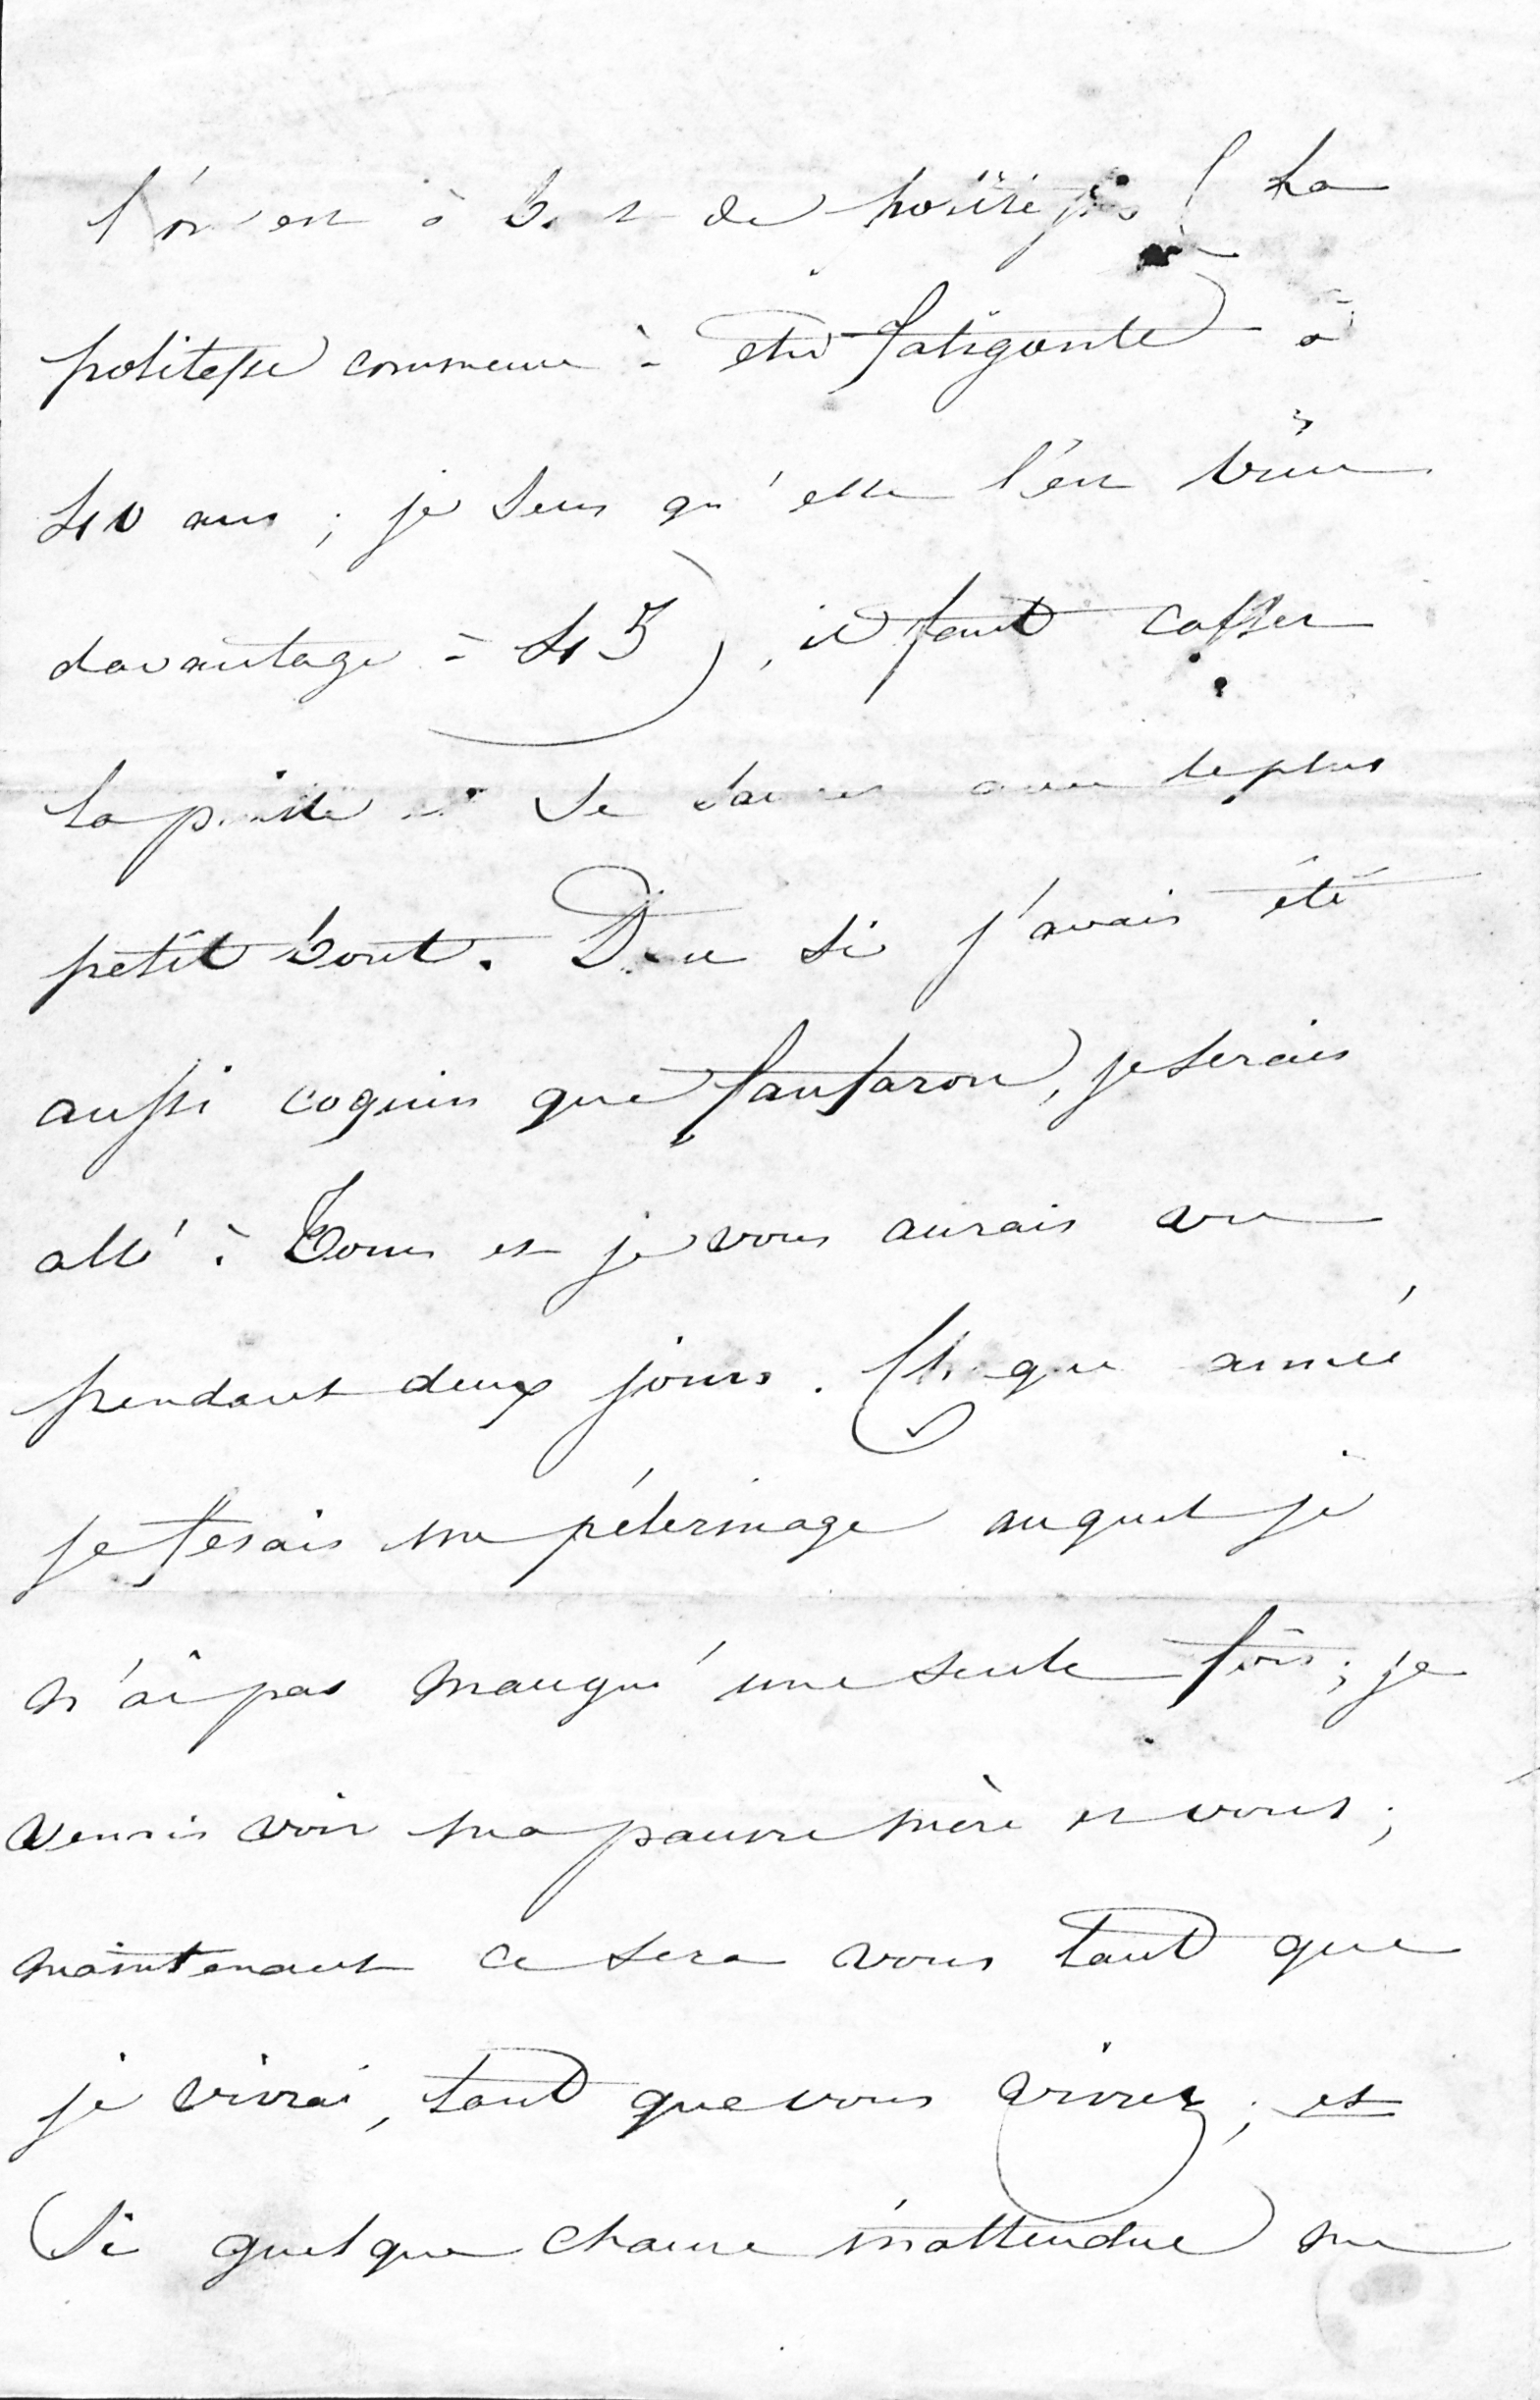 l'on est à bout de
La
politesse commence à être fatigante à
40 ans ; je sens qu'elle l'est bien
davantage à 45, il faut casser
la paille et se sauver avec le plus
petit bout. Donc si j'avais été
aussi coquin que fanfaron, je serais
allé à Tours et je vous aurais vu
pendant deux jours. Chaque année
je fesais un pélerinage auquel je
n'ai pas manqué une seule fois ; je
venais voir ma pauvre mère et vous ;
maintenant ce sera vous tant que
je vivrai, tant que vous vivrez ; et
si quelque chance inattendue me